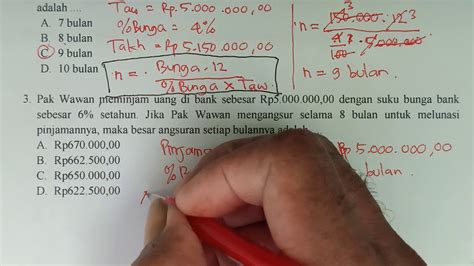 adalah ....
A. 7 bulan
B. 8 bulan
C. 9 bulan
D. 10 bulan
Taw = Rp. 5.000.000,00
% Bunga = 4%
Takh = Rp. 5.150.000,00
n = Bunga . 12
% Bunga x Taw
n = 150.000 . 12 3
4 . 5.000.000
100
n = 9 bulan.
3. Pak Wawan meminjam uang di bank sebesar Rp5.000.000,00 dengan suku bunga bank
sebesar 6% setahun. Jika Pak Wawan mengangsur selama 8 bulan untuk melunasi
pinjamannya, maka besar angsuran setiap bulannya adalah
A. Rp670.000,00
B. Rp662.500,00
C. Rp650.000,00
D. Rp622.500,00
Pinjama
Rp. 5.000.000,00
% B
bulan.